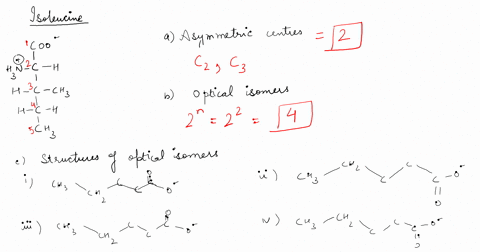 Isoleucine
1 COO⁻
H₃N⁺ - 2 C - H
H - 3 C - CH₃
H - 4 C - H
5 CH₃
a) Asymmetric centres = 2
C₂, C₃
b) Optical isomers
2ⁿ = 2² = 4
c) Structures of optical isomers
i) CH₃ CH₂ C C C O O⁻
ii) CH₃ CH₂ C C C O⁻ O
iii) CH₃ CH₂ C C C O O⁻
iv) CH₃ CH₂ C C C O⁻ O